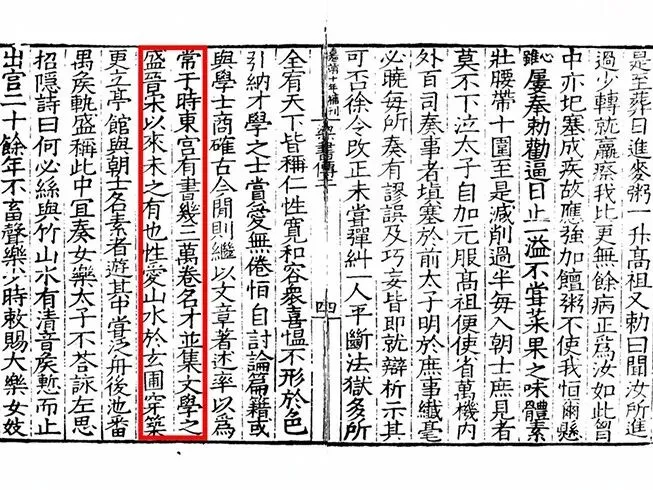 是至葬日進麥粥一升高祖又勅曰聞汝所進
過少轉就羸瘵我比更無餘病正爲汝如此胷
中亦圮塞成疾故應強加饘粥不使我恒爾懸
心雖屢奏勅勸逼日止一溢不甞菜果之味體素
壯腰帶十圍至是減削過半每入朝士庶見者
莫不下泣太子自加元服高祖便使省萬機內
外百司奏事者填塞於前太子明於庶事纖毫
必曉每所奏有謬誤及巧妄皆即就辯析示其
可否徐令改正未甞彈糾一人平斷法獄多所
梁書傳二
四
全宥天下皆稱仁性寬和容衆喜慍不形於色
引納才學之士賞愛無倦恒自討論篇籍或
與學士商確古今閒則繼以文章著述率以爲
常于時東宮有書幾三萬卷名才並集文學之
盛晉宋以來未之有也性愛山水於玄圃穿築
更立亭館與朝士名素者遊其中甞泛舟後池番
禺侯軌盛稱此中宜奏女樂太子不答詠左思
招隱詩曰何必絲與竹山水有清音侯慙而止
出宮二十餘年不畜聲樂少時敕賜大樂女妓